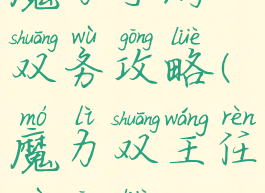 shuāng wù gōng lüè
双务攻略(
mó lì shuāng wáng rèn
魔力双王任